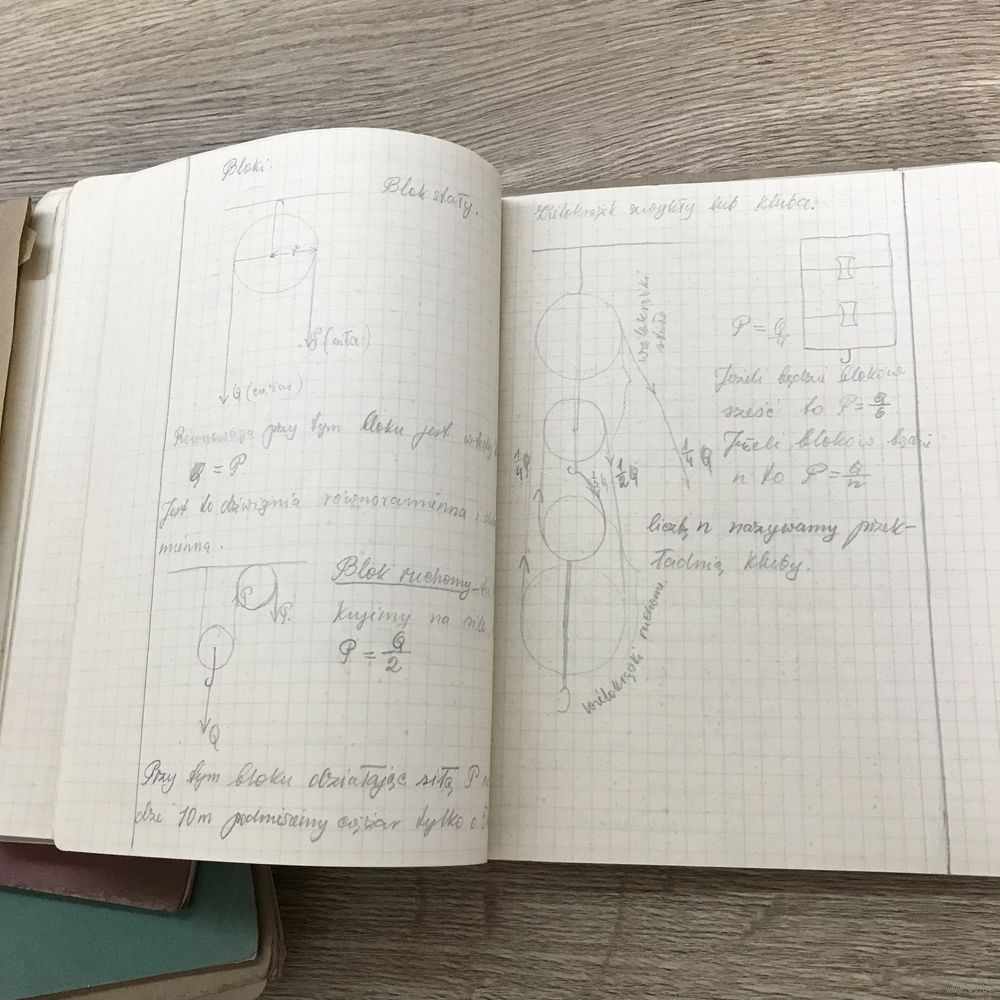 Bloki.
Blok stały.
r
P (siła)
Q (ciężar)
Równowaga przy tym bloku jest
Q = P
Jest to dźwignia równoramienna i
mienna.
Blok ruchomy
P
P.
kujemy na
P = Q/2
Q
Przy tym bloku działając siłą P
dze 10m podniesiemy ciężar tylko o
Wielokrążek zwykły lub kluba.
wielokrążki
stałe
P = Q/4
Jeżeli będzie bloków
sześć to P = Q/6
Jeżeli bloków będzie
n to P = Q/n
1/4 Q
1/2 Q
1/4 Q
liczbę n nazywamy przek-
ładnią kluby.
wielokrążki ruchome.